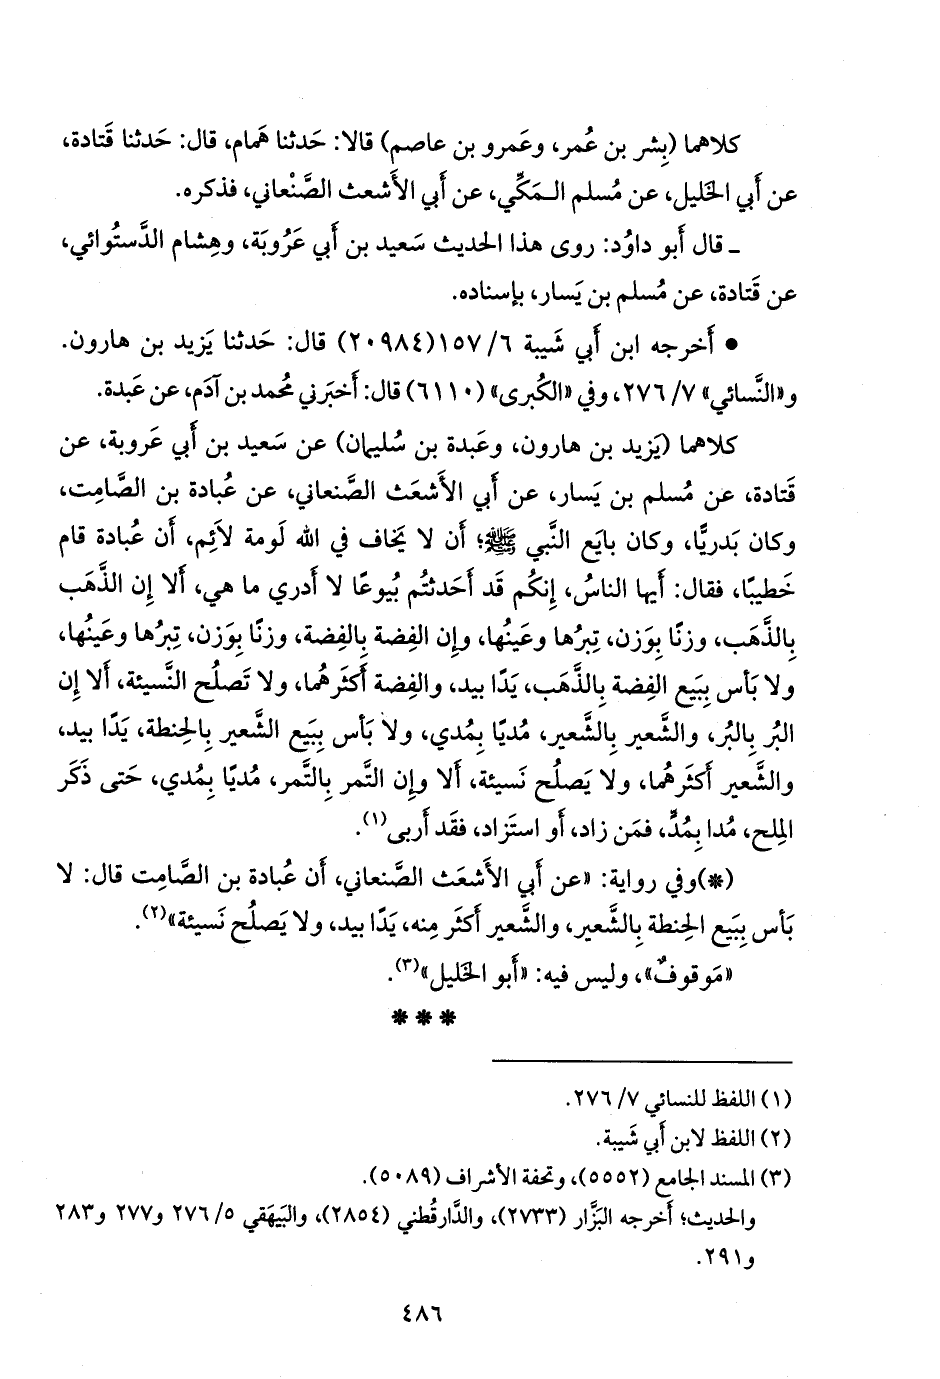 كلاهما (بِشر بن عُمر، وعَمرو بن عاصم) قالا: حَدثنا هَمام، قال: حَدثنا قَتادة،
عن أَبي الخَليل، عن مُسلم المَكِّي، عن أَبي الأَشعث الصَّنْعاني، فذكره.
ـ قال أَبو داوُد: روى هذا الحديث سَعيد بن أَبي عَرُوبَة، وهِشام الدَّستُوائي،
عن قَتادة، عن مُسلم بن يَسار، بإسناده.
• أَخرجه ابن أَبي شَيبة ٦/ ١٥٧(٢٠٩٨٤) قال: حَدثنا يَزيد بن هارون.
و«النَّسائي» ٧/ ٢٧٦، وفي «الكُبرى» (٦١١٠) قال: أَخبَرني مُحمد بن آدَم، عن عَبدة.
كلاهما (يَزيد بن هارون، وعَبدة بن سُليمان) عن سَعيد بن أَبي عَروبة، عن
قَتادة، عن مُسلم بن يَسار، عن أَبي الأَشعَث الصَّنعاني، عن عُبادة بن الصَّامِت،
وكان بَدريًّا، وكان بايَع النَّبي ﷺ؛ أَن لا يَخاف في الله لَومة لاَئِم، أَن عُبادة قام
خَطيبًا، فقال: أَيها الناسُ، إِنكُم قَد أَحَدثتُم بُيوعًا لا أَدري ما هي، أَلا إِن الذَّهَب
بِالذَّهَب، وزنًا بِوَزن، تِبرُها وعَينُها، وإِن الفِضة بِالفِضة، وزنًا بِوَزن، تِبرُها وعَينُها،
ولا بَأس بِبَيع الفِضة بِالذَّهَب، يَدًا بيد، والفِضة أَكثَرهُما، ولا تَصلُح النَّسيئة، أَلا إِن
البُر بِالبُر، والشَّعير بِالشَّعير، مُديًا بِمُدي، ولا بَأس بِبَيع الشَّعير بِالحِنطة، يَدًا بيد،
والشَّعير أَكثَرهُما، ولا يَصلُح نَسيئة، أَلا وإِن التَّمر بِالتَّمر، مُديًا بِمُدي، حَتى ذَكَر
المِلح، مُدا بِمُدٍّ، فمَن زاد، أَو استَزاد، فقَد أَربى(١).
(*)وفي رواية: «عن أَبي الأَشعَث الصَّنعاني، أَن عُبادة بن الصَّامِت قال: لا
بَأس بِبَيع الحِنطة بِالشَّعير، والشَّعير أَكثَر مِنه، يَدًا بيد، ولا يَصلُح نَسيئة»(٢).
«مَوقوفٌ»، وليس فيه: «أَبو الخَليل»(٣).
* * *
(١) اللفظ للنسائي ٧/ ٢٧٦.
(٢) اللفظ لابن أَبي شَيبة.
(٣) المسند الجامع (٥٥٥٢)، وتحفة الأشراف (٥٠٨٩).
والحديث؛ أَخرجه البَزَّار (٢٧٣٣)، والدَّارقُطني (٢٨٥٤)، والبَيهَقي ٥/ ٢٧٦ و٢٧٧ و٢٨٣
و٢٩١.
٤٨٦